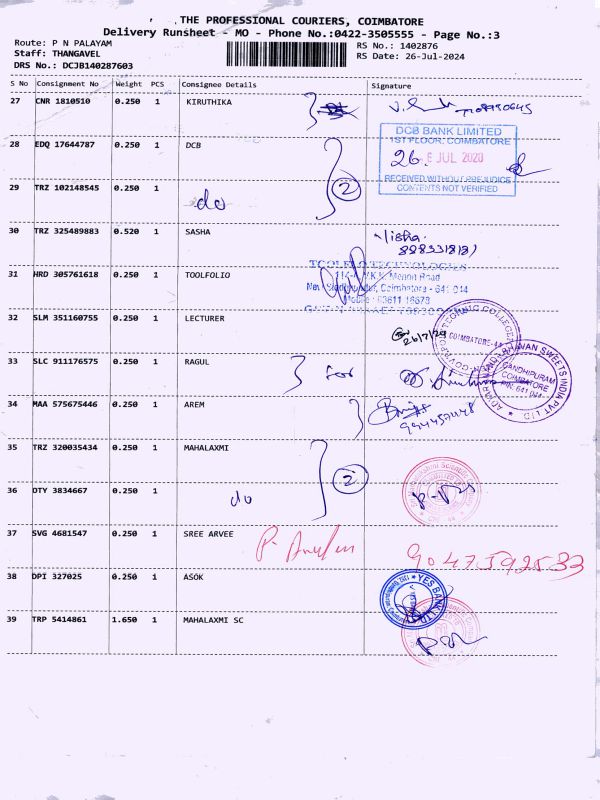 THE PROFESSIONAL COURIERS, COIMBATORE
Delivery Runsheet - MO - Phone No.:0422-3505555 - Page No.:3
Route: P N PALAYAM
Staff: THANGAVEL
DRS No.: DCJB140287603
RS No.: 1402876
RS Date: 26-Jul-2024
S No Consignment No Weight PCS Consignee Details Signature
27 CNR 1810510 0.250 1 KIRUTHIKA
28 EDQ 17644787 0.250 1 DCB
DCB BANK LIMITED
1ST FLOOR, COIMBATORE
26. JUL 2020
RECEIVED WITHOUT PREJUDICE
CONTENTS NOT VERIFIED
29 TRZ 102148545 0.250 1 do 2
30 TRZ 325489883 0.520 1 SASHA
31 HRD 305761618 0.250 1 TOOLFOLIO
Coimbatore - 641 014
32 SLM 351160755 0.250 1 LECTURER
26/7/24
COIMBATORE-
33 SLC 911176575 0.250 1 RAGUL
for
SWEETS INDIA PVT LTD
GANDHIPURAM
COIMBATORE
PIN: 641 044
34 MAA 575675446 0.250 1 AREM
35 TRZ 320035434 0.250 1 MAHALAXMI
2
36 DTY 3834667 0.250 1 do
37 SVG 4681547 0.250 1 SREE ARVEE
9047592533
38 DPI 327025 0.250 1 ASOK
YES BANK LTD
39 TRP 5414861 1.650 1 MAHALAXMI SC